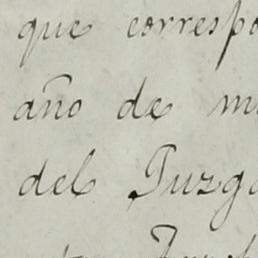 que correspo
año de m
del Juzga